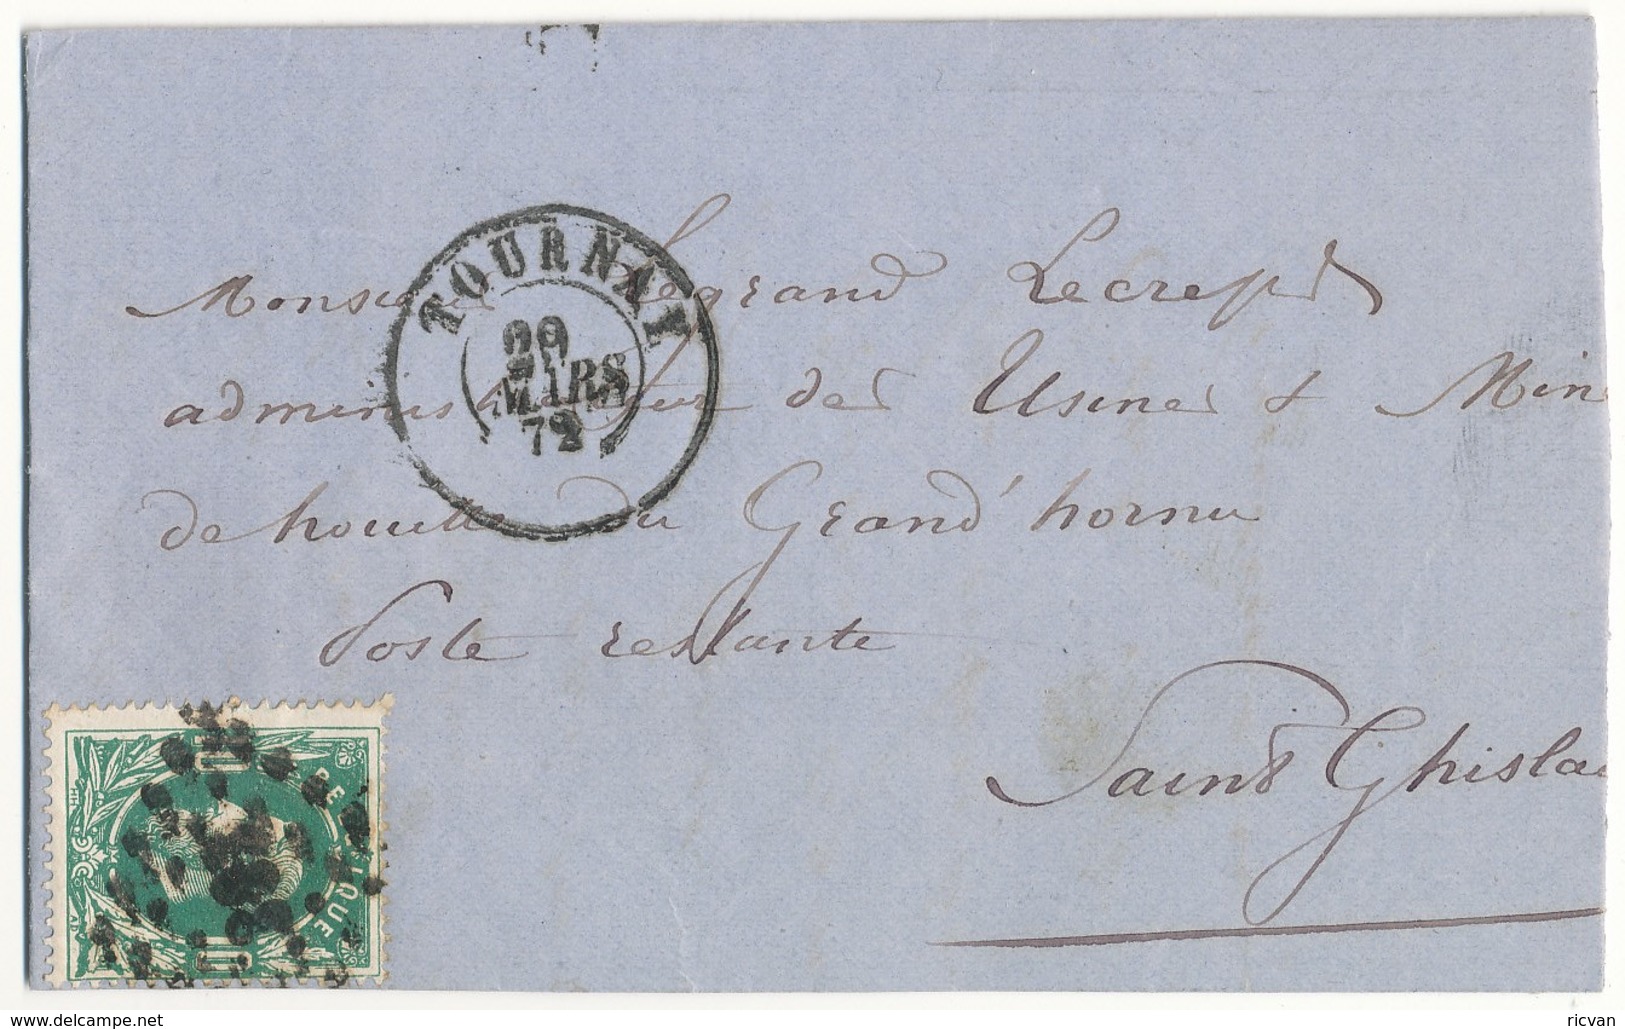 TOURNAY
MARS
72
Monsieur Legrand Lecreps
administrateur des Usines & Min
de houille du Grand'hornu
Poste restante
Saint Ghislai
10
POSTES
BELGIQUE
10
www.delcampe.net
ricvan